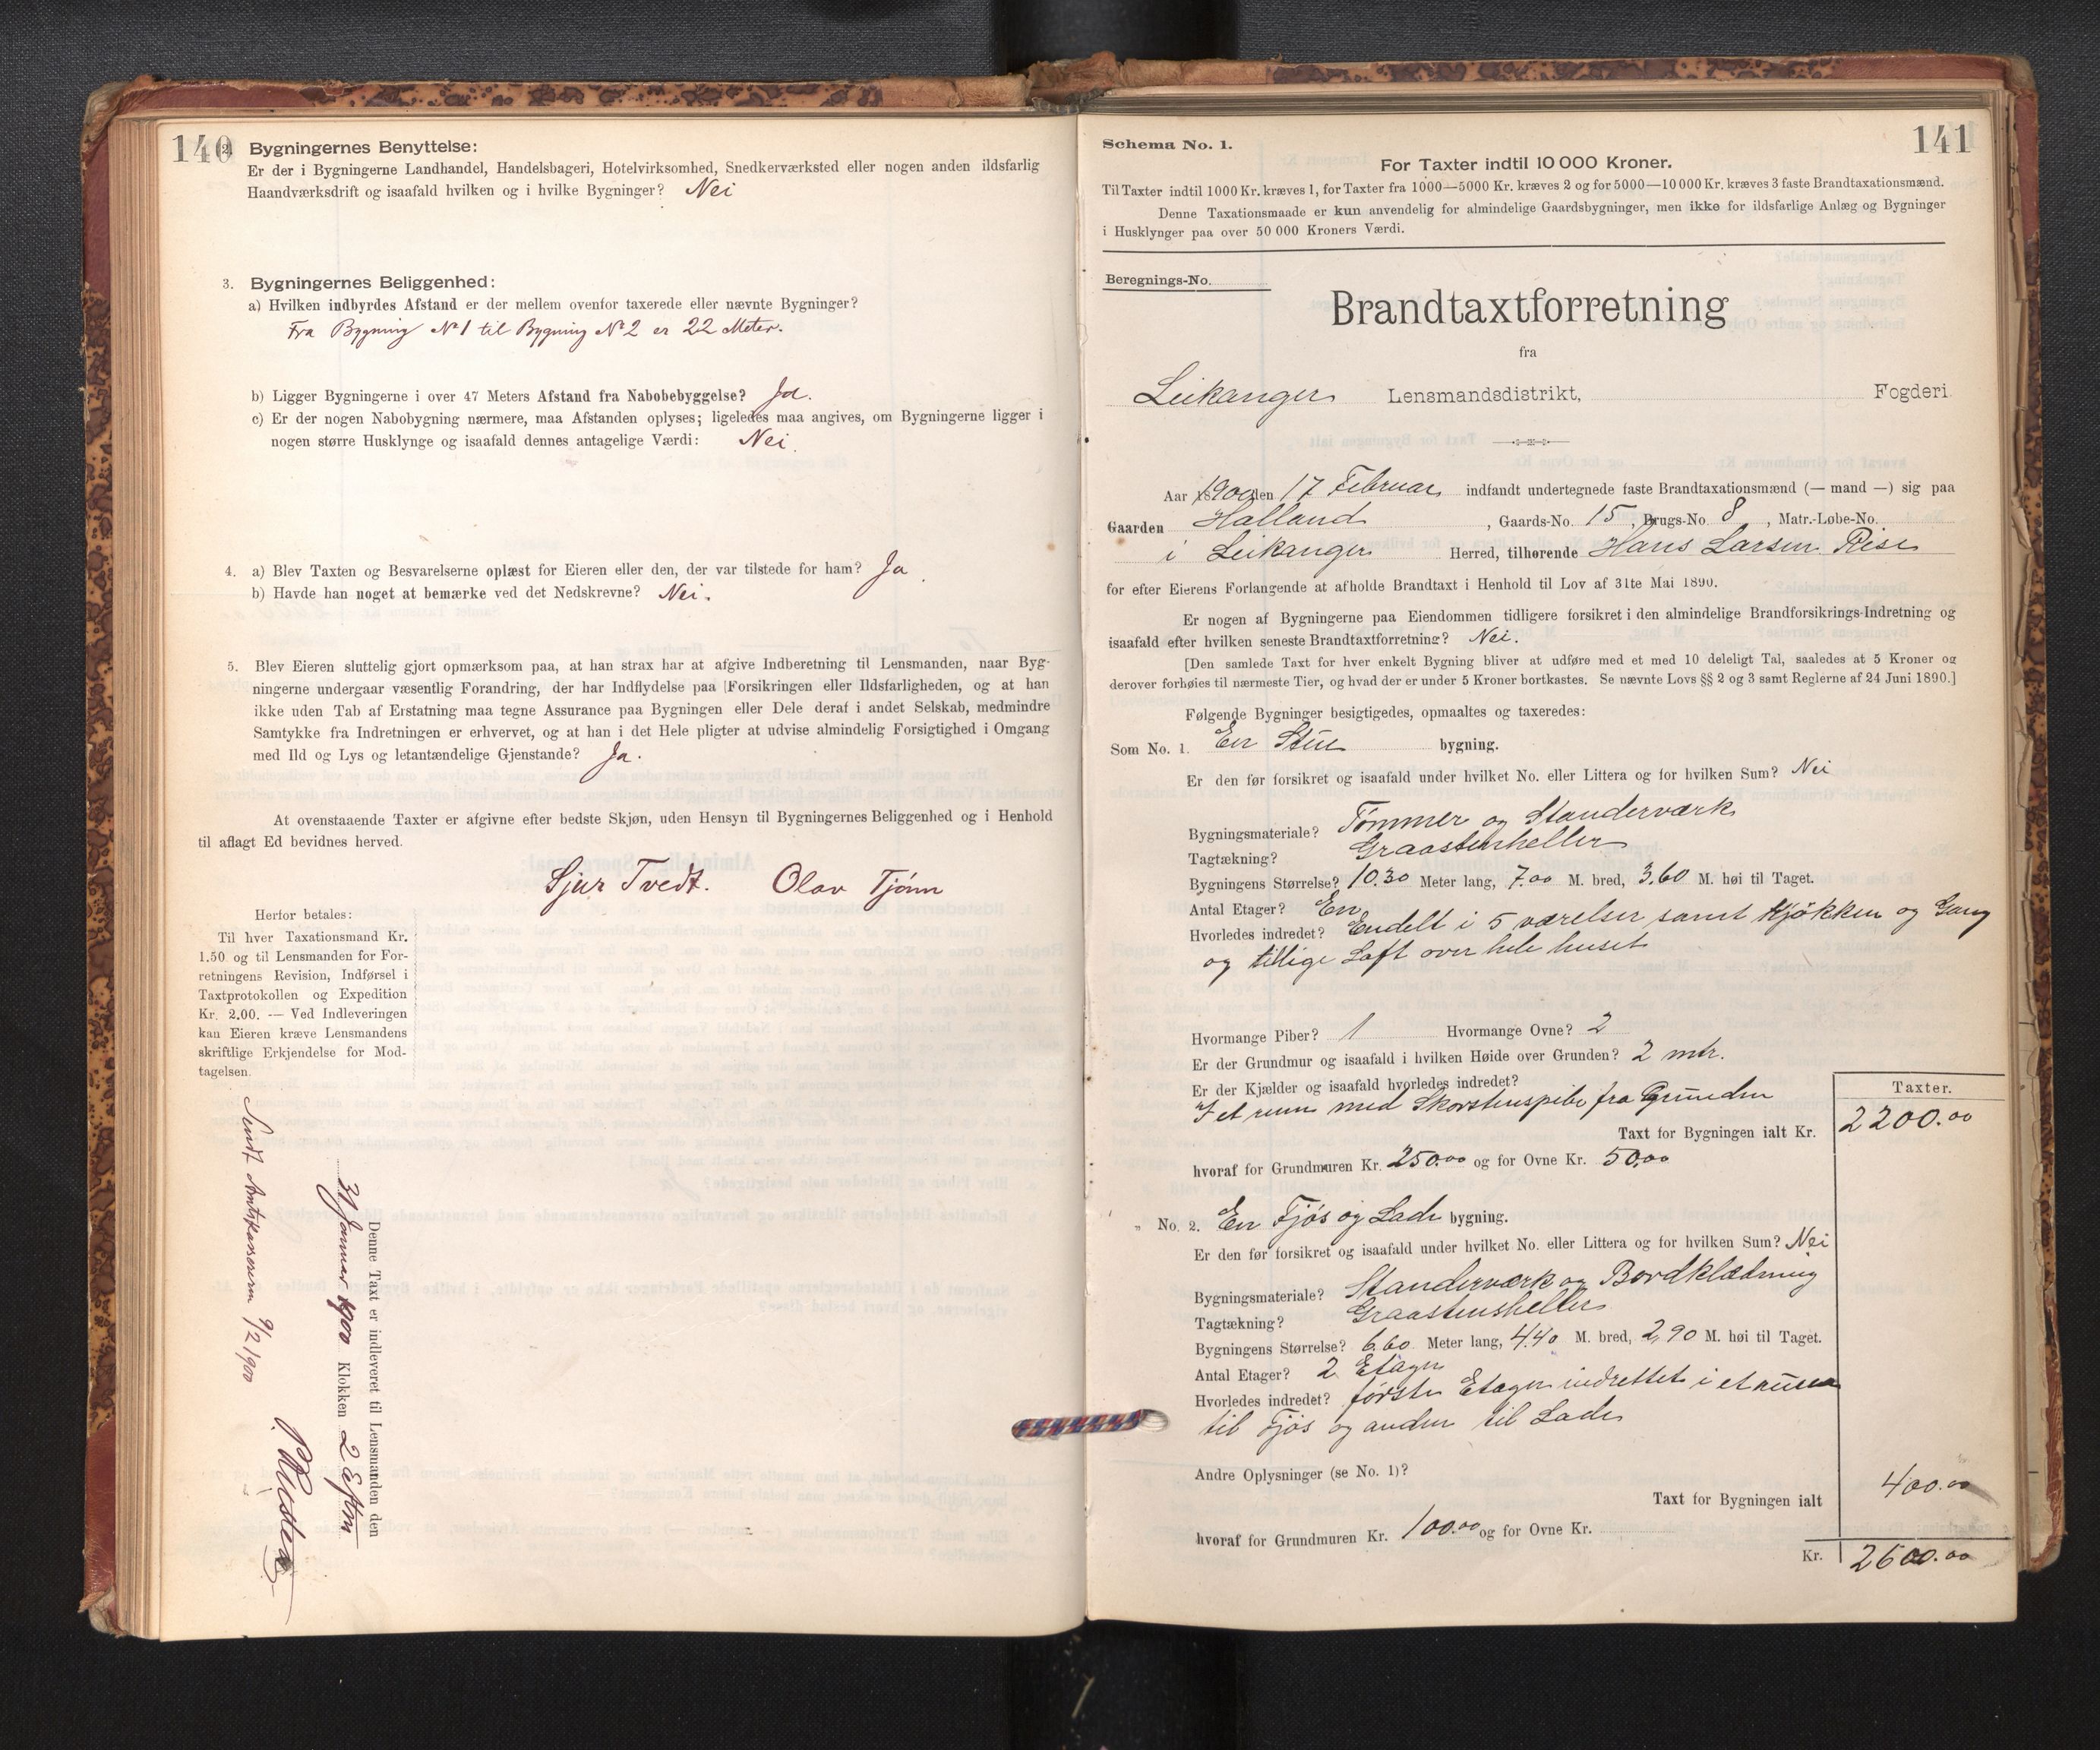 140
2. Bygningernes Benyttelse:
Er der i Bygningerne Landhandel, Handelsbageri, Hotelvirksomhed, Snedkerværksted eller nogen anden ildsfarlig
Haandværksdrift og isaafald hvilken og i hvilke Bygninger? Nei
3. Bygningernes Beliggenhed:
a) Hvilken indbyrdes Afstand er der mellem ovenfor taxerede eller nævnte Bygninger?
Fra Bygning No 1 til Bygning No 2 er 22 Meter.
b) Ligger Bygningerne i over 47 Meters Afstand fra Nabobebyggelse? Ja.
c) Er der nogen Nabobygning nærmere, maa Afstanden oplyses; ligeledes maa angives, om Bygningerne ligger i
nogen større Husklynge og isaafald dennes antagelige Værdi: Nei.
4. a) Blev Taxten og Besvarelserne oplæst for Eieren eller den, der var tilstede for ham? Ja.
b) Havde han noget at bemærke ved det Nedskrevne? Nei.
5. Blev Eieren sluttelig gjort opmærksom paa, at han strax har at afgive Indberetning til Lensmanden, naar Byg-
ningerne undergaar væsentlig Forandring, der har Indflydelse paa Forsikringen eller Ildsfarligheden, og at han
ikke uden Tab af Erstatning maa tegne Assurance paa Bygningen eller Dele deraf i andet Selskab, medmindre
Samtykke fra Indretningen er erhvervet, og at han i det Hele pligter at udvise almindelig Forsigtighed i Omgang
med Ild og Lys og letantændelige Gjenstande? Ja.
At ovenstaaende Taxter er afgivne efter bedste Skjøn, uden Hensyn til Bygningernes Beliggenhed og i Henhold
til aflagt Ed bevidnes herved.
Sjur Tvedt. Olav Tjønn
Herfor betales:
Til hver Taxationsmand Kr.
1.50 og til Lensmanden for For-
retningens Revision, Indførsel i
Taxtprotokollen og Expedition
Kr. 2.00. — Ved Indleveringen
kan Eieren kræve Lensmandens
skriftlige Erkjendelse for Mod-
tagelsen.
Denne Taxt er indleveret til Lensmanden den
31 Januar 1900 Klokken 2 Eftm
Sendt Amtskassereren 9/2 1900
141
Schema No. 1.
For Taxter indtil 10 000 Kroner.
Til Taxter indtil 1000 Kr. kræves 1, for Taxter fra 1000—5000 Kr. kræves 2 og for 5000—10 000 Kr. kræves 3 faste Brandtaxationsmænd.
Denne Taxationsmaade er kun anvendelig for almindelige Gaardsbygninger, men ikke for ildsfarlige Anlæg og Bygninger
i Husklynger paa over 50 000 Kroners Værdi.
Beregnings-No.
Brandtaxtforretning
fra
Leikanger Lensmandsdistrikt, Fogderi
Aar 1900 den 17 Februar indfandt undertegnede faste Brandtaxationsmænd (— mand —) sig paa
Gaarden Halland, Gaards-No. 15, Brugs-No. 8, Matr.-Løbe-No.
i Leikanger Herred, tilhørende Hans Larsen Rise
for efter Eierens Forlangende at afholde Brandtaxt i Henhold til Lov af 31te Mai 1890.
Er nogen af Bygningerne paa Eiendommen tidligere forsikret i den almindelige Brandforsikrings-Indretning og
isaafald efter hvilken seneste Brandtaxtforretning? Nei.
[Den samlede Taxt for hver enkelt Bygning bliver at udføre med et med 10 deleligt Tal, saaledes at 5 Kroner og
derover forhøies til nærmeste Tier, og hvad der er under 5 Kroner bortkastes. Se nævnte Lovs §§ 2 og 3 samt Reglerne af 24 Juni 1890.]
Følgende Bygninger besigtigedes, opmaaltes og taxeredes:
Som No. 1. En Stue bygning.
Er den før forsikret og isaafald under hvilket No. eller Littera og for hvilken Sum? Nei
Bygningsmateriale? Tømmer og Standerværk
Tagtækning? Graastenheller
Bygningens Størrelse? 10.30 Meter lang, 7.00 M. bred, 3.60 M. høi til Taget.
Antal Etager? En
Hvorledes indredet? Endelt i 5 værelser samt Kjøkken og Gang
og tillige Loft over hele huset
Hvormange Piber? 1 Hvormange Ovne? 2
Er der Grundmur og isaafald i hvilken Høide over Grunden? 2 mtr.
Er der Kjælder og isaafald hvorledes indredet?
I et rum med Skorstenspibe fra Grunden
Taxter.
Taxt for Bygningen ialt Kr. 2200.00
hvoraf for Grundmuren Kr. 250.00 og for Ovne Kr. 50.00
„ No. 2. En Fjøs og Lade bygning.
Er den før forsikret og isaafald under hvilket No. eller Littera og for hvilken Sum? Nei
Bygningsmateriale? Standerværk og Bordklædning
Tagtækning? Graastensheller
Bygningens Størrelse? 6.60 Meter lang, 4.40 M. bred, 2,90 M. høi til Taget.
Antal Etager? 2 Etager
Hvorledes indredet? første Etager indrettet i et rum
til Fjøs og anden til Lade
Andre Oplysninger (se No. 1)?
Taxt for Bygningen ialt 400.00
hvoraf for Grundmuren Kr. 100.00 og for Ovne Kr.
Kr. 2600.00